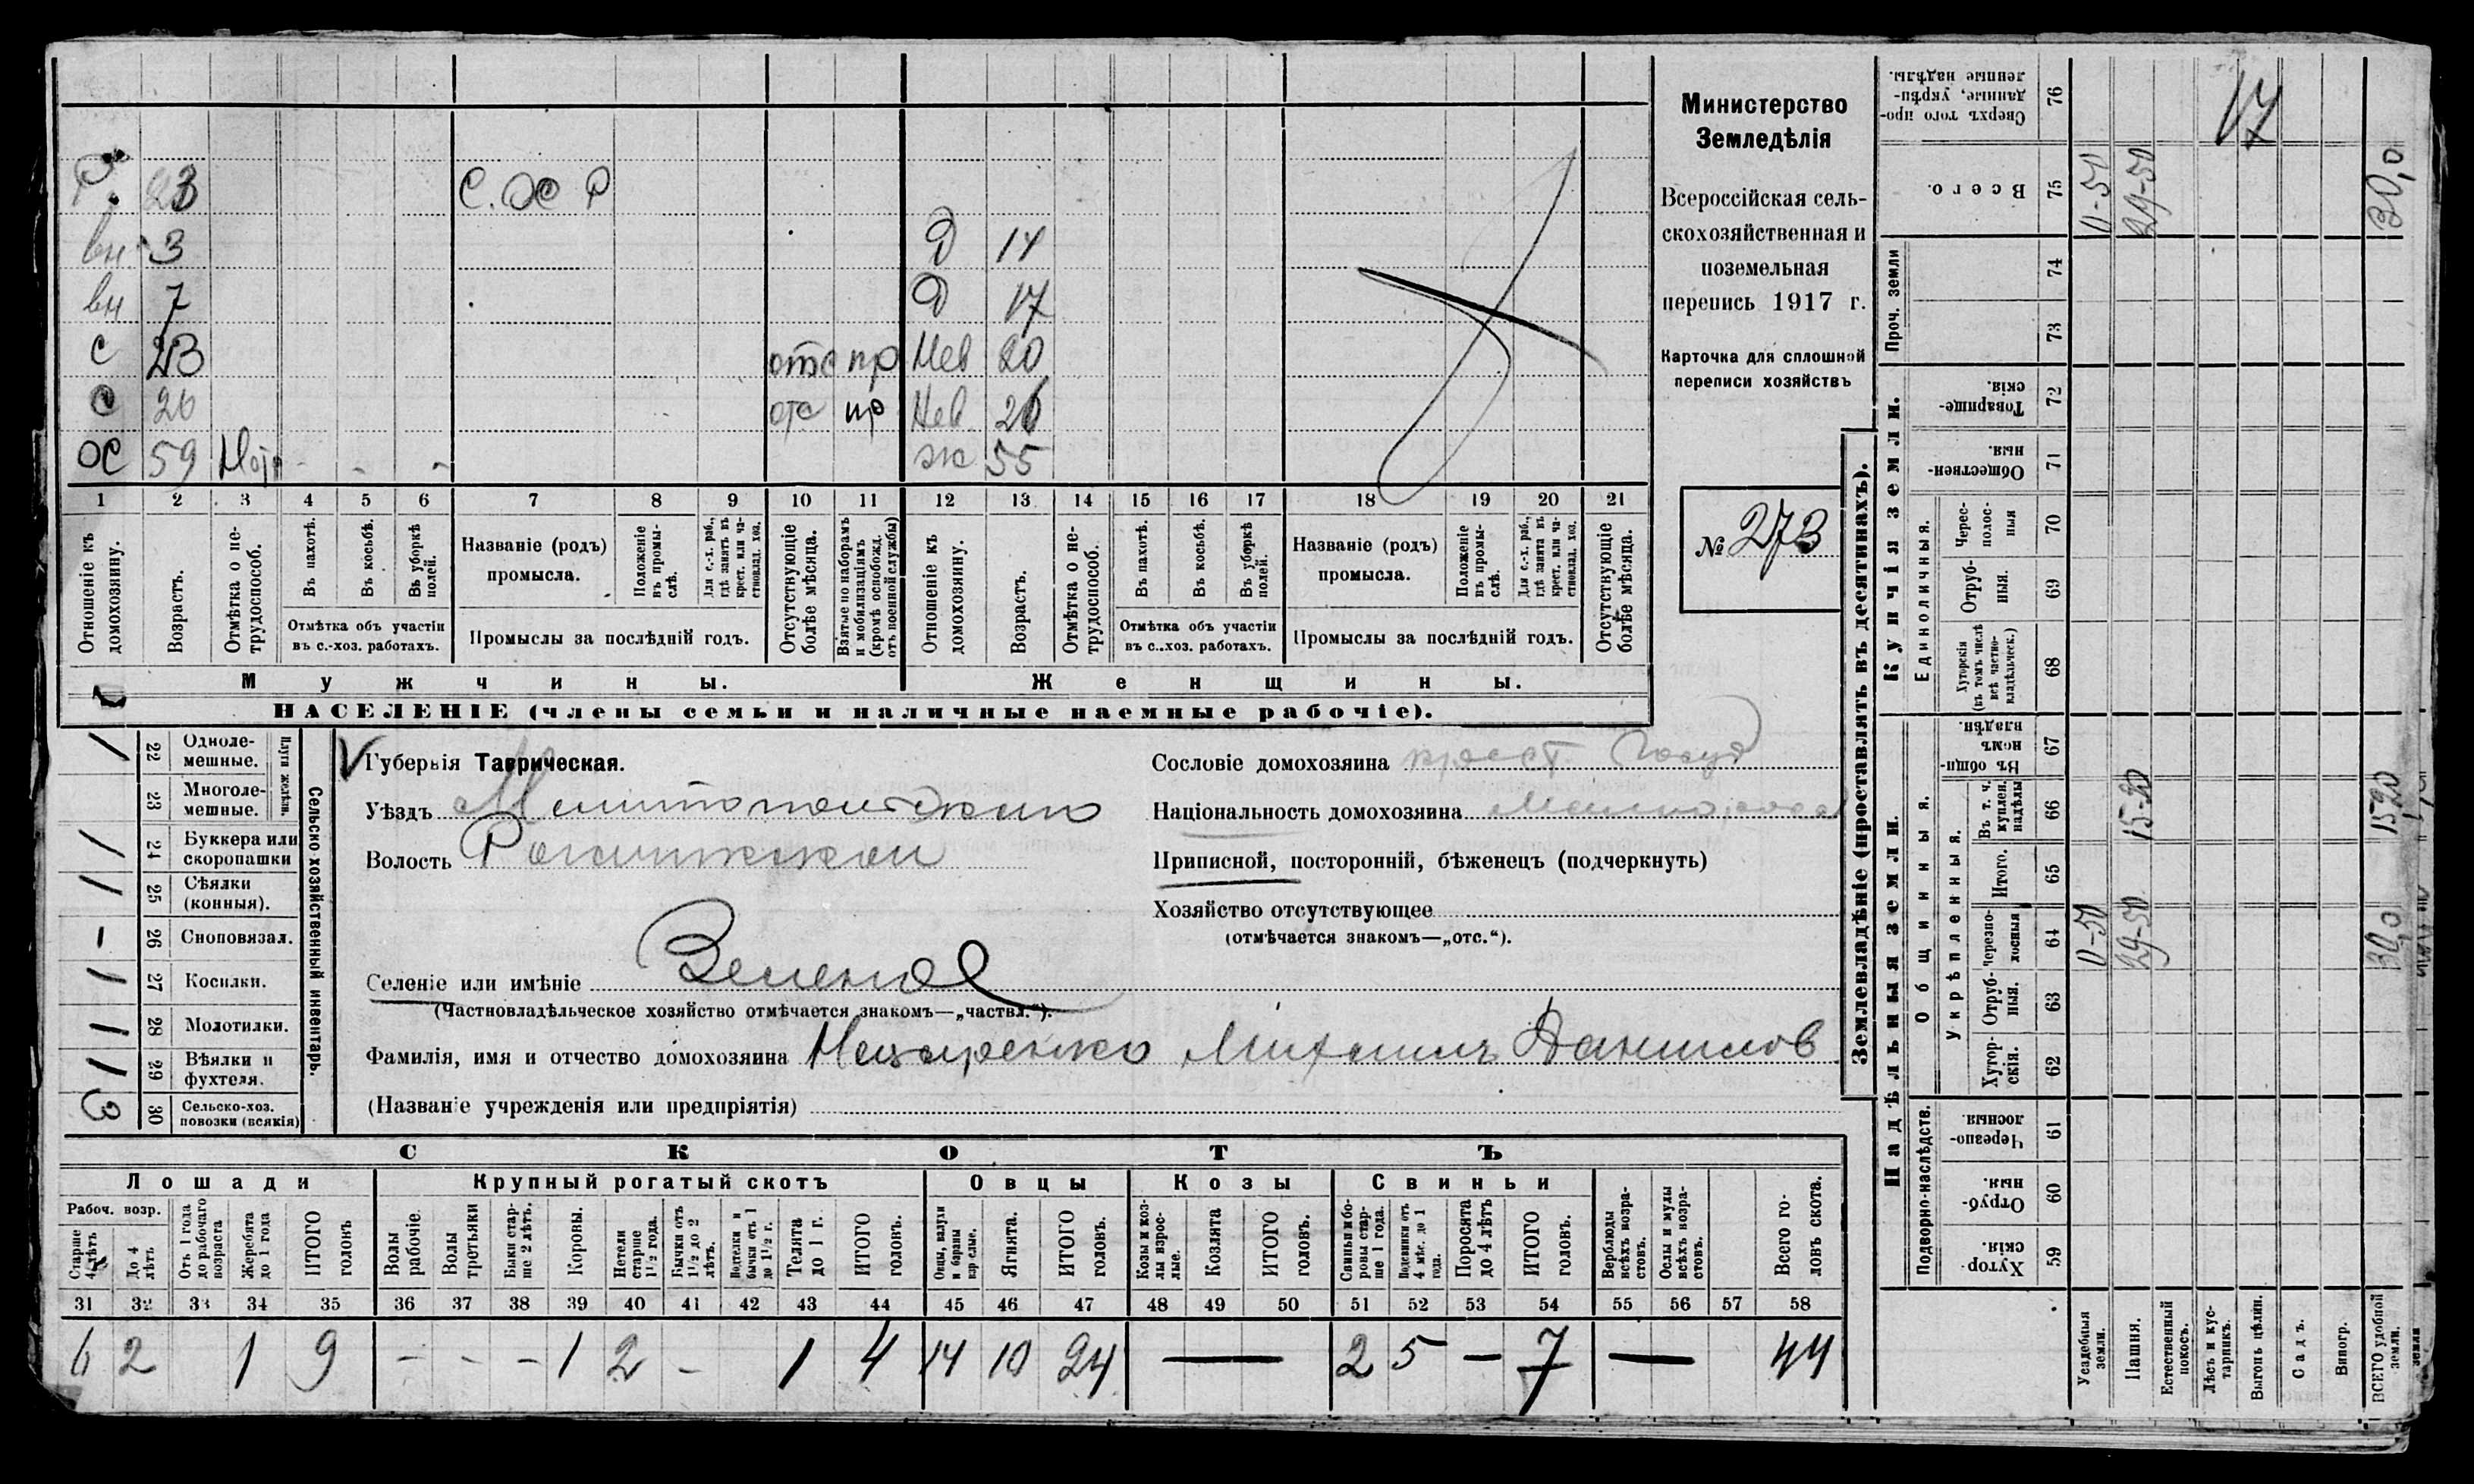 Р. 23 С. ОС Р
вн 3 Д 14
вн 7 Д 17
С 23 отс пр Нев 20
С 26 отс пр Нев. 26
ОС 59 - - - ж 55
1 2 3 4 5 6 7 8 9 10 11 12 13 14 15 16 17 18 19 20 21
Отношеніе къ домохозяину.
Возрастъ.
Отмѣтка о не-трудоспособ.
Въ пахотѣ.
Въ косьбѣ.
Въ уборкѣ полей.
Отмѣтка объ участіи
въ с.-хоз. работахъ.
Названіе (родъ)
промысла.
Положеніе въ промы-слѣ.
Для с.-х. раб., гдѣ занятъ въ крест. или ча-стновлад. хоз.
Промыслы за послѣдній годъ.
Отсутствующіе болѣе мѣсяца.
Взятые по наборамъ и мобилизаціямъ (кромѣ освобожд. отъ военной службы)
Отношеніе къ домохозяину.
Возрастъ.
Отмѣтка о не-трудоспособ.
Въ пахотѣ.
Въ косьбѣ.
Въ уборкѣ полей.
Отмѣтка объ участіи
въ с.-хоз. работахъ.
Названіе (родъ)
промысла.
Положеніе въ промы-слѣ.
Для с.-х. раб., гдѣ занята въ крест. или ча-стновлад. хоз.
Промыслы за послѣдній годъ.
Отсутствующіе болѣе мѣсяца.
Мужчины. Женщины.
НАСЕЛЕНІЕ (члены семьи и наличные наемные рабочіе).
Министерство
Земледѣлія
Всероссійская сель-
скохозяйственная и
поземельная
перепись 1917 г.
Карточка для сплошной
переписи хозяйствъ
№ 273
Сельско хозяйственный инвентарь.
Плуги желѣзн.
1 22 Одноле-мешные.
23 Многоле-мешные.
1 24 Буккера или скоропашки
1 25 Сѣялки (конныя).
- 26 Сноповязал.
1 27 Косилки.
1 28 Молотилки.
1 29 Вѣялки и фухтеля.
3 30 Сельско-хоз. повозки (всякія)
Губернія Таврическая.
Уѣздъ Мелитопольскаго
Волость
Селеніе или имѣніе Зеленое
(Частновладѣльческое хозяйство отмѣчается знакомъ—„частвл.“).
Фамилія, имя и отчество домохозяина Нещеренко Михаилъ Данилов
(Названіе учрежденія или предпріятія)
Сословіе домохозяина крест. Госуд
Національность домохозяина Малоросс
Приписной, посторонній, бѣженецъ (подчеркнуть)
Хозяйство отсутствующее
(отмѣчается знакомъ—„отс.“).
СКОТЪ
Лошади Крупный рогатый скотъ Овцы Козы Свиньи
Рабоч. возр.
Старше 4 лѣтъ
До 4 лѣтъ
Отъ 1 года до рабочаго возраста
Жеребята до 1 года
ИТОГО головъ
Волы рабочіе.
Волы третьяки
Быки стар-ше 2 лѣтъ.
Коровы.
Нетели старше 1½ года.
Бычки отъ 1½ до 2 лѣтъ.
Подтелки и бычки отъ 1 до 1½ г.
Телята до 1 г.
ИТОГО головъ.
Овцы, валухи и бараны взрослые.
Ягнята.
ИТОГО головъ.
Козы и коз-лы взрос-лые.
Козлята
ИТОГО головъ.
Свиньи и бо-ровы стар-ше 1 года.
Подсвинки отъ 4 мѣс. до 1 года.
Поросята до 4 лѣтъ
ИТОГО головъ.
Верблюды всѣхъ возра-стовъ.
Ослы и мулы всѣхъ возра-стовъ.
Всего го-ловъ скота.
31 32 33 34 35 36 37 38 39 40 41 42 43 44 45 46 47 48 49 50 51 52 53 54 55 56 57 58
6 2 1 9 - - - 1 2 - 1 4 14 10 24 — 2 5 — 7 — 44
Землевладѣніе (проставлять въ десятинахъ).
Надѣльныя земли. Купчія земли. Проч. земли
Подворно-наслѣдств.
Общинныя.
Укрѣпленныя.
Единоличныя.
59 Хутор-скія.
60 Отруб-ныя.
61 Черезпо-лосныя
62 Хутор-скія.
63 Отруб-ныя.
64 Черезпо-лосныя
65 Итого.
66 Въ т. ч. куплен. надѣлы
67 Въ общин-номъ владѣн.
68 Хуторскія (въ томъ числѣ всѣ частно-владѣльческ.)
69 Отруб-ныя.
70 Черес-полос-ныя
71 Обществен-ныя.
72 Товарище-скія.
73
74
75 Всего.
76 Сверхъ того про-данные, укрѣп-ленные надѣлы.
Усадебныя земли. 0-50 0-50
Пашня. 29-50 15-20 29-50
Естественный покосъ.
Лѣсъ и кус-тарникъ.
Выгонъ цѣлин.
Садъ.
Виногр.
ВСЕГО удобной земли. 30,0 15,20 30,0
17